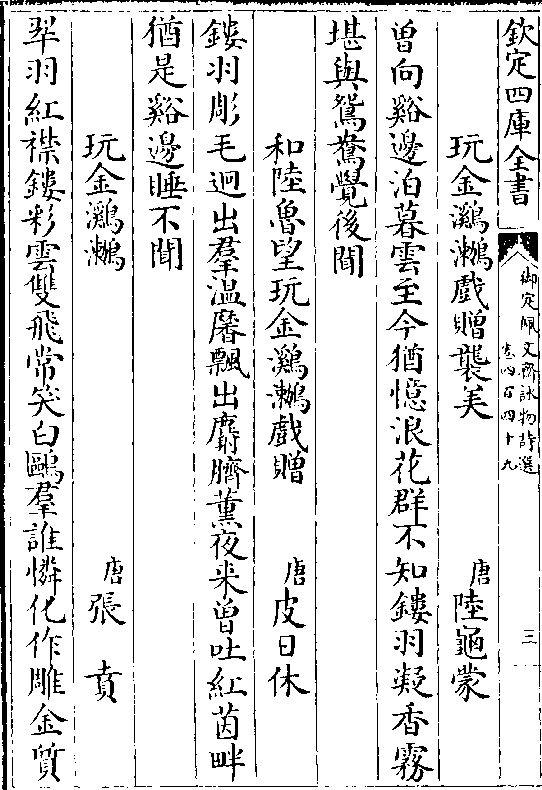 欽定四庫全書
御定佩文齋詠物詩選
卷四百四十九
三
玩金鸂鶒戲贈襲美 唐 陸龜蒙
曽向谿邊泊暮雲至今猶憶浪花群不知鏤羽凝香霧
堪與鴛鴦覺後聞
和陸魯望玩金鸂鶒戲贈 唐 皮日休
鏤羽彫毛迥出羣温黁飄出麝臍薫夜来曽吐紅茵畔
猶是谿邊睡不聞
玩金鸂鶒 唐 張賁
翠羽紅襟鏤彩雲雙飛常笑白鷗羣誰憐化作雕金質